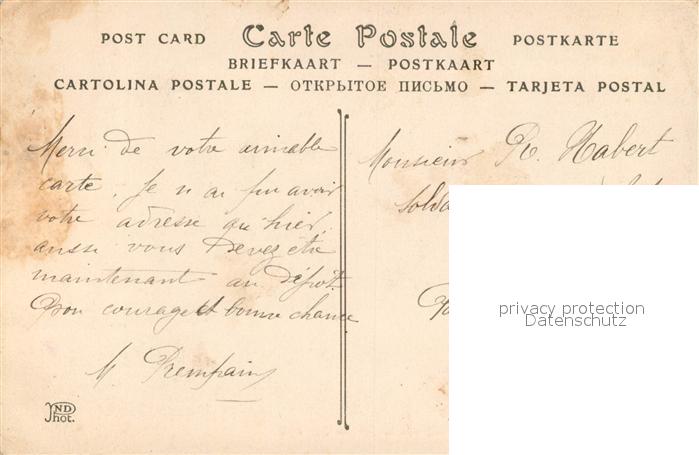 POST CARD Carte Postale POSTKARTE
BRIEFKAART — POSTKAART
CARTOLINA POSTALE — ОТКРЫТОЕ ПИСЬМО — TARJETA POSTAL
Merci de votre aimable
carte. Je n ai pu avoir
votre adresse qu'hier.
aussi vous devez etre
maintenant au Dépot.
Bon courage et bonne chance
M Prempain
ND
Phot.
Monsieur R. Habert
Solda
privacy protection
Datenschutz